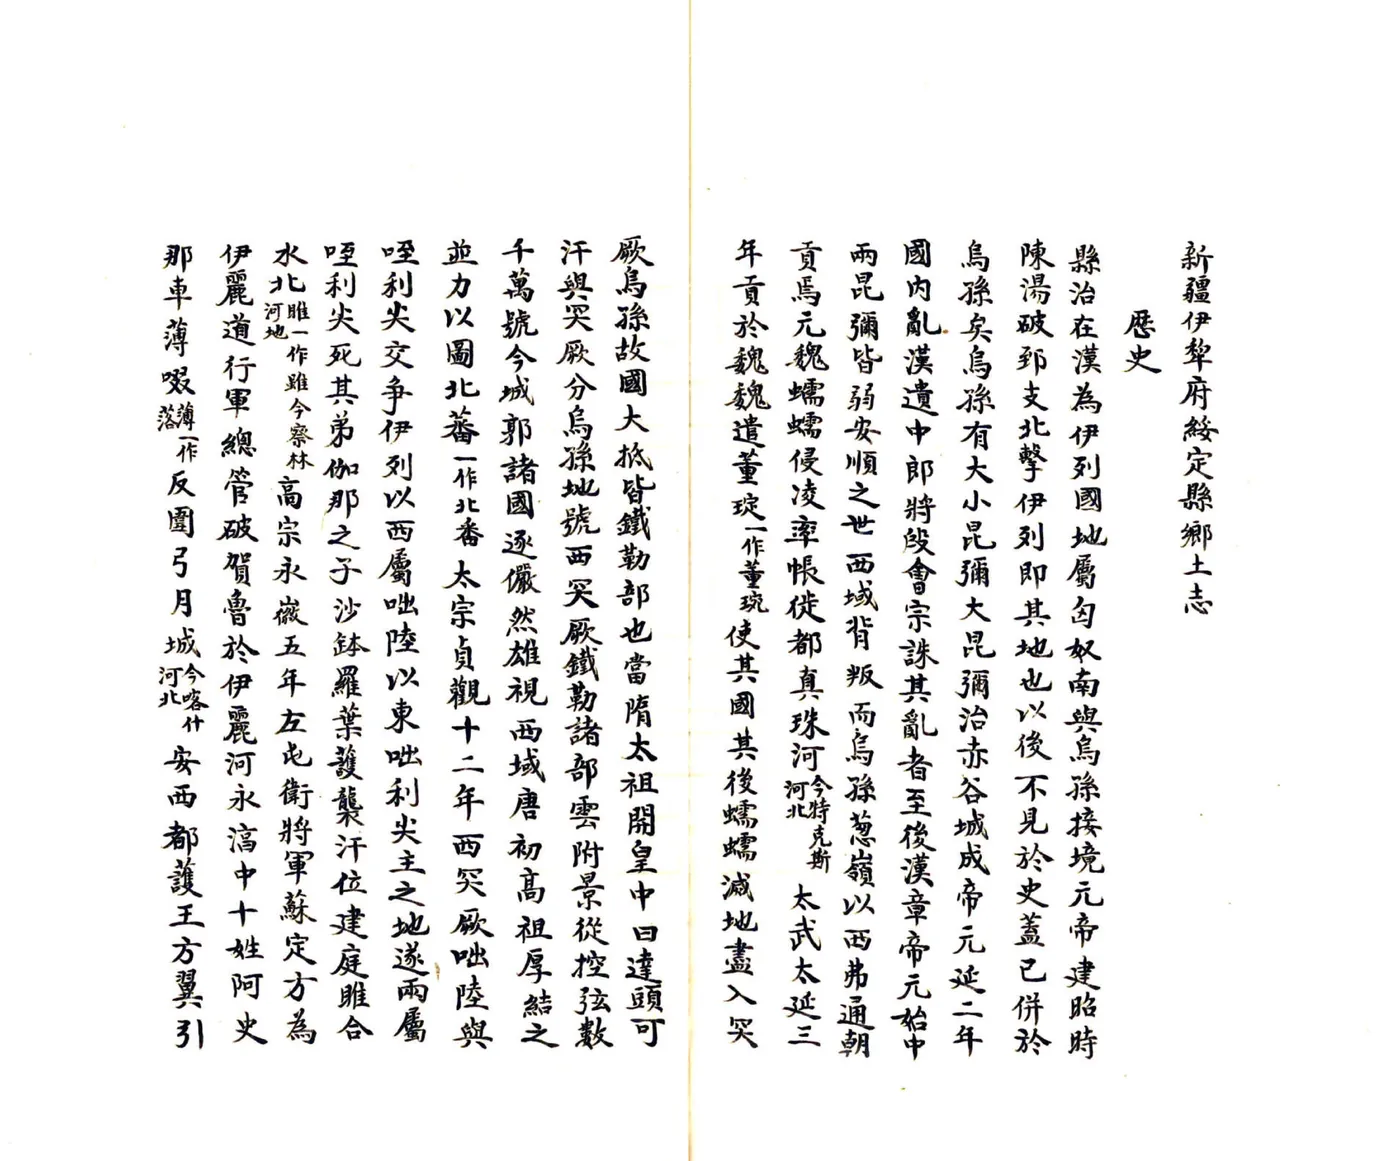 新疆伊犂府綏定縣鄉土志
歷史
縣治在漢為伊列國地屬匈奴南與烏孫接境元帝建昭時
陳湯破郅支北擊伊列即其地也以後不見於史蓋已併於
烏孫矣烏孫有大小昆彌大昆彌治赤谷城成帝元延二年
國內亂漢遣中郎將段會宗誅其亂者至後漢章帝元始中
兩昆彌皆弱安順之世西域背叛而烏孫葱嶺以西弗通朝
貢焉元魏蠕蠕侵凌率帳徙都真珠河今特克斯河北太武太延三
年貢於魏魏遣董琔一作董琬使其國其後蠕蠕減地盡入突
厥烏孫故國大抵皆鐵勒部也當隋太祖開皇中曰達頭可
汗與突厥分烏孫地號西突厥鐵勒諸部雲附景從控弦數
千萬號今城郭諸國逐儼然雄視西域唐初高祖厚結之
並力以圖北蕃一作北番太宗貞觀十二年西突厥咄陸與
咥利尖交爭伊列以西屬咄陸以東咄利尖主之地遂兩屬
咥利尖死其弟伽那之子沙鉢羅葉護襲汗位建庭睢合
水北睢一作雖今察林河地高宗永嶶五年左屯衛將軍蘇定方為
伊麗道行軍總管破賀魯於伊麗河永湻中十姓阿史
那車薄啜薄一作落反圍弓月城今喀什河北安西都護王方翼引